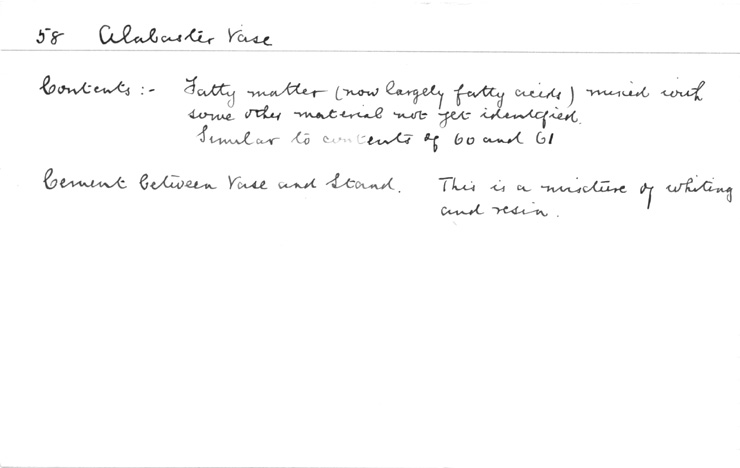 58 Alabaster Vase
Contents :- Fatty matter (now largely fatty acids) mixed with
some other material not yet identified.
Similar to contents of 60 and 61
Cement between Vase and Stand. This is a mixture of whiting
and resin.